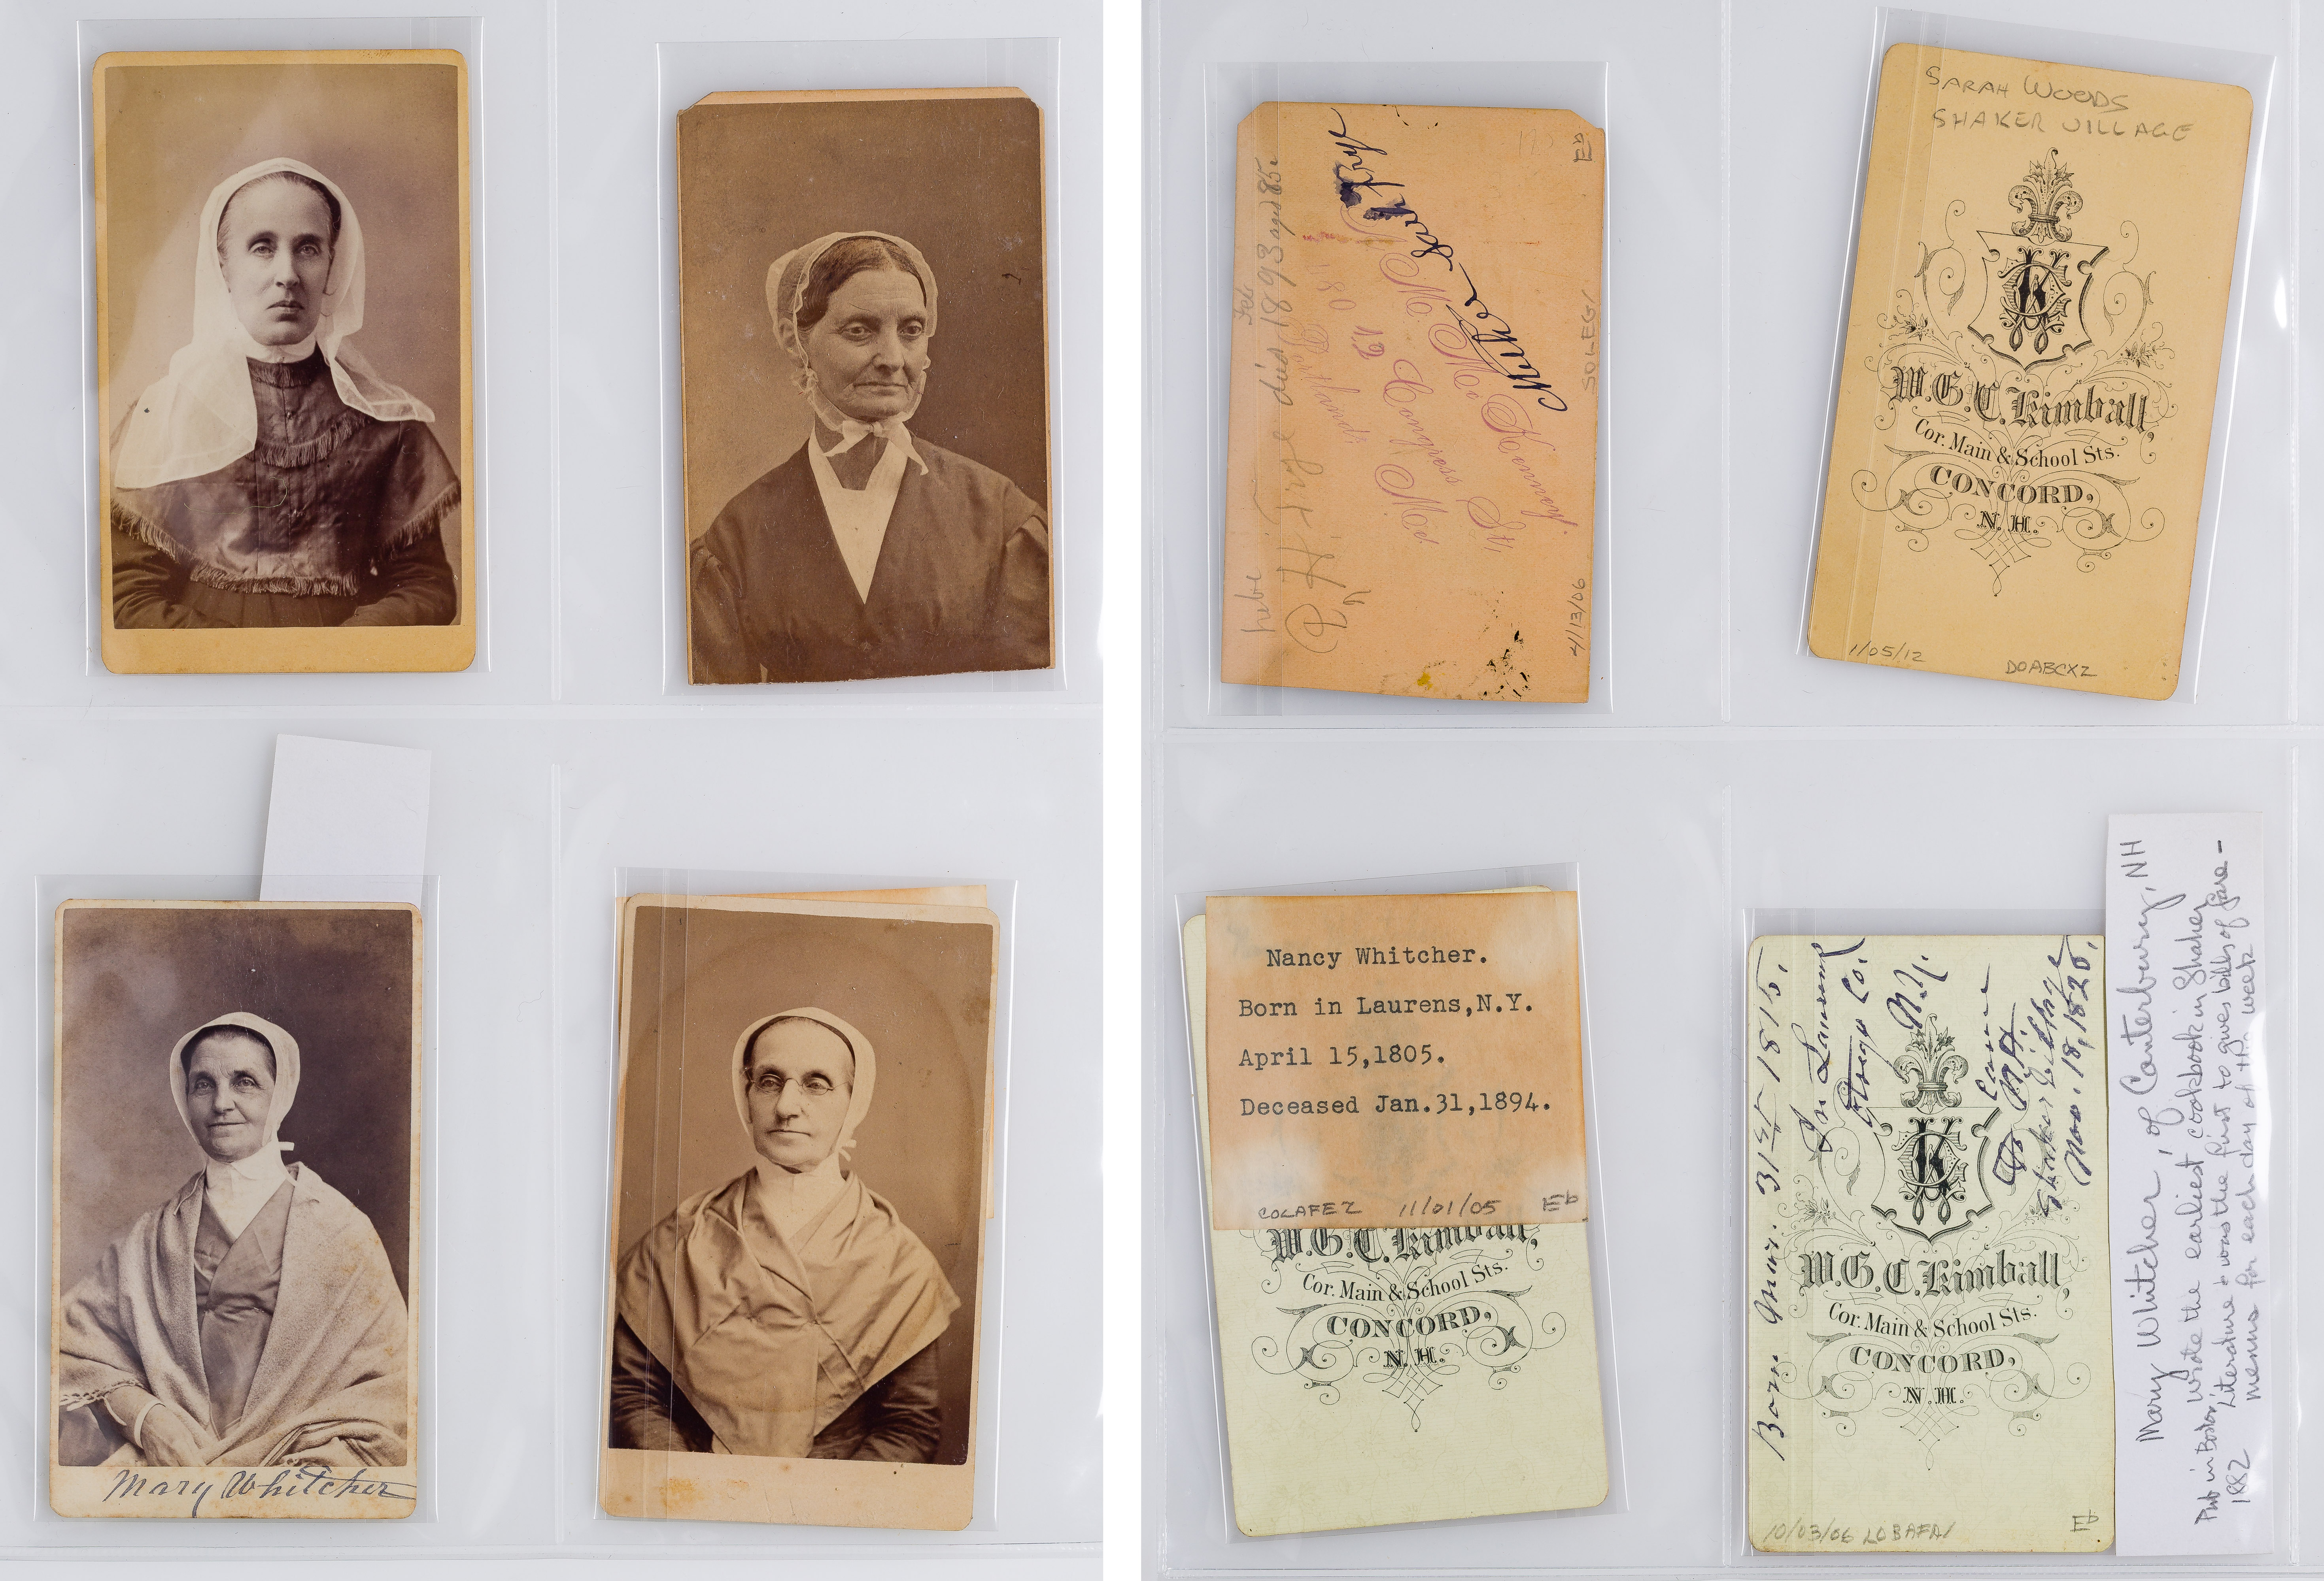 Mary Whitcher
Feb
died 1893 aged 85.
Frye
Mother Sarah Frye
Eb
M. Mc Kenney
Congress St.
Portland
Me
SOLEG/
4/13/06
SARAH WOODS
SHAKER VILLAGE
W.G.C. Kimball,
Cor. Main & School Sts.
CONCORD,
N.H.
1/05/12
DOABCXZ
Nancy Whitcher.
Born in Laurens,N.Y.
April 15,1805.
Deceased Jan.31,1894.
COLAFEZ 11/01/05 Eb
W.G.C. Kimball,
Cor. Main & School Sts.
CONCORD,
N.H.
Born Mar. 31st 1815.
In Laurens
Otsego Co.
N.Y.
Came
To N.H.
Shaker Village
Nov. 18, 1826.
W.G.C. Kimball,
Cor. Main & School Sts.
CONCORD,
N.H.
10/03/06 LOBAFA/
Eb
Mary Whitcher, of Canterbury, NH
Wrote the earliest cookbook in Shaker
Literature & was the first to give bills of fare -
menus for each day of the week
Pub in Boston,
1882